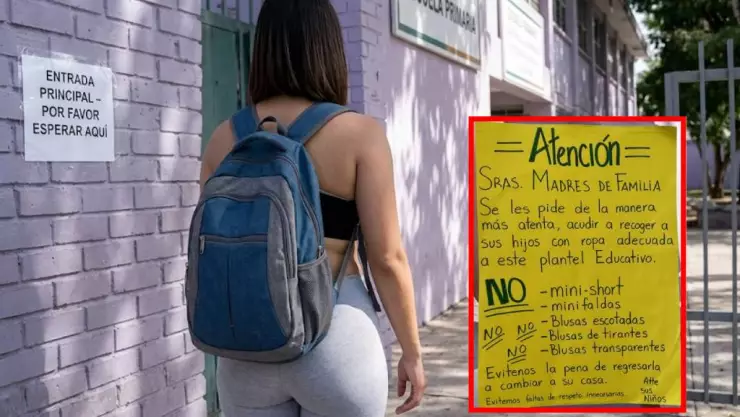 ENTRADA
PRINCIPAL –
POR FAVOR
ESPERAR AQUÍ
ESCUELA PRIMARIA
=Atención=
SRAS. MADRES DE FAMILIA
Se les pide de la manera
más atenta, acudir a recoger a
sus hijos con ropa adecuada
a este plantel Educativo.
NO - mini-short
- minifaldas
NO NO - Blusas escotadas
- Blusas de tirantes
NO - Blusas transparentes
Evitenos la pena de regresarla
a cambiar a su casa.
Atte
sus
Niños
Evitemos faltas de respeto innecesarias.